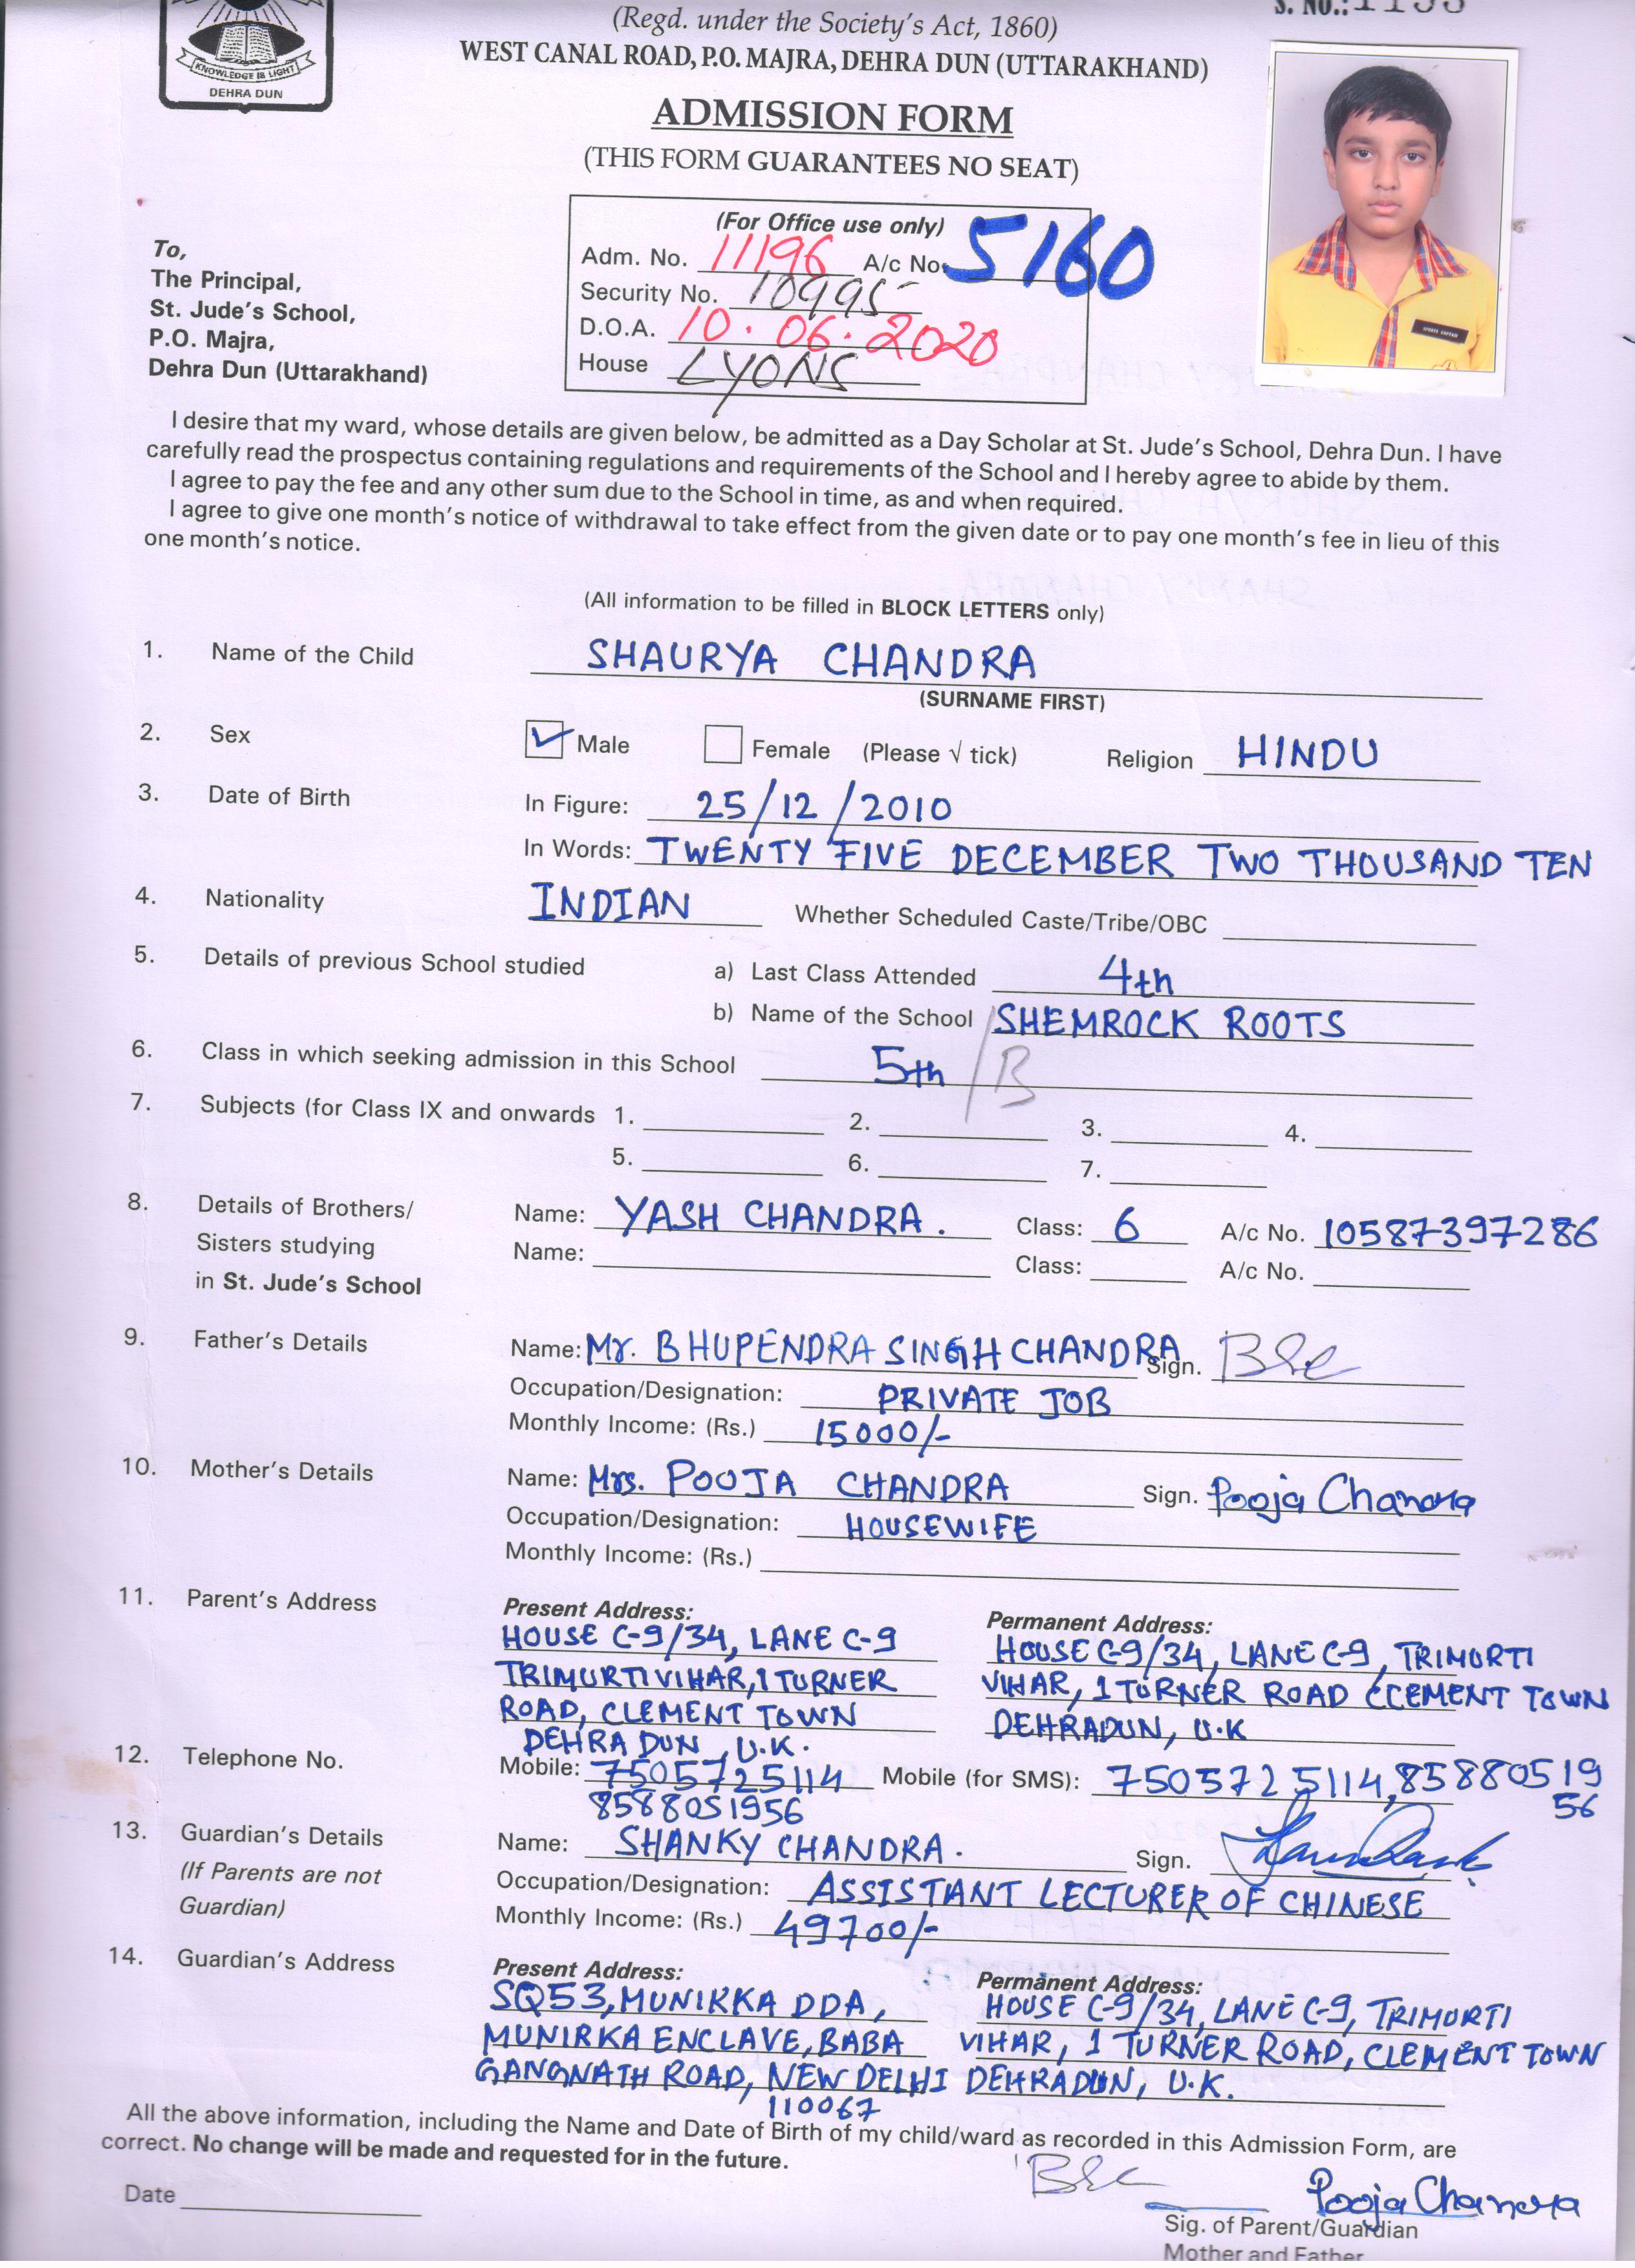 (Regd. under the Society's Act, 1860)
WEST CANAL ROAD, P.O. MAJRA, DEHRA DUN (UTTARAKHAND)
KNOWLEDGE IS LIGHT
DEHRA DUN
ADMISSION FORM
(THIS FORM GUARANTEES NO SEAT)
(For Office use only)
Adm. No. 11196 A/c No. 5160
Security No. 10995
D.O.A. 10.06.2020
House LYONS
To,
The Principal,
St. Jude's School,
P.O. Majra,
Dehra Dun (Uttarakhand)
I desire that my ward, whose details are given below, be admitted as a Day Scholar at St. Jude's School, Dehra Dun. I have
carefully read the prospectus containing regulations and requirements of the School and I hereby agree to abide by them.
I agree to pay the fee and any other sum due to the School in time, as and when required.
I agree to give one month's notice of withdrawal to take effect from the given date or to pay one month's fee in lieu of this
one month's notice.
(All information to be filled in BLOCK LETTERS only)
1. Name of the Child SHAURYA CHANDRA
(SURNAME FIRST)
2. Sex ✓ Male Female (Please √ tick) Religion HINDU
3. Date of Birth In Figure: 25/12/2010
In Words: TWENTY FIVE DECEMBER TWO THOUSAND TEN
4. Nationality INDIAN Whether Scheduled Caste/Tribe/OBC
5. Details of previous School studied a) Last Class Attended 4th
b) Name of the School SHEMROCK ROOTS
6. Class in which seeking admission in this School 5th /B
7. Subjects (for Class IX and onwards 1. 2. 3. 4.
5. 6. 7.
8. Details of Brothers/ Name: YASH CHANDRA. Class: 6 A/c No. 10587397286
Sisters studying Name: Class: A/c No.
in St. Jude's School
9. Father's Details Name: Mr. BHUPENDRA SINGH CHANDRA Sign.
Occupation/Designation: PRIVATE JOB
Monthly Income: (Rs.) 15000/-
10. Mother's Details Name: Mrs. POOJA CHANDRA Sign. Pooja Chandra
Occupation/Designation: HOUSEWIFE
Monthly Income: (Rs.)
11. Parent's Address Present Address: Permanent Address:
HOUSE C-9/34, LANE C-9 HOUSE C-9/34, LANE C-9, TRIMURTI
TRIMURTI VIHAR, 1 TURNER VIHAR, 1 TURNER ROAD CLEMENT TOWN
ROAD, CLEMENT TOWN DEHRADUN, U.K
DEHRA DUN, U.K.
12. Telephone No. Mobile: 7505725114 Mobile (for SMS): 7505725114, 85880519
8588051956 56
13. Guardian's Details Name: SHANKY CHANDRA. Sign.
(If Parents are not Occupation/Designation: ASSISTANT LECTURER OF CHINESE
Guardian) Monthly Income: (Rs.) 49700/-
14. Guardian's Address Present Address: Permanent Address:
SQ53, MUNIRKA DDA, HOUSE C-9/34, LANE C-9, TRIMORTI
MUNIRKA ENCLAVE, BABA VIHAR, 1 TURNER ROAD, CLEMENT TOWN
GANGNATH ROAD, NEW DELHI DEHRADUN, U.K.
110067
All the above information, including the Name and Date of Birth of my child/ward as recorded in this Admission Form, are
correct. No change will be made and requested for in the future.
Date Pooja Chandra
Sig. of Parent/Guardian
Mother and Father